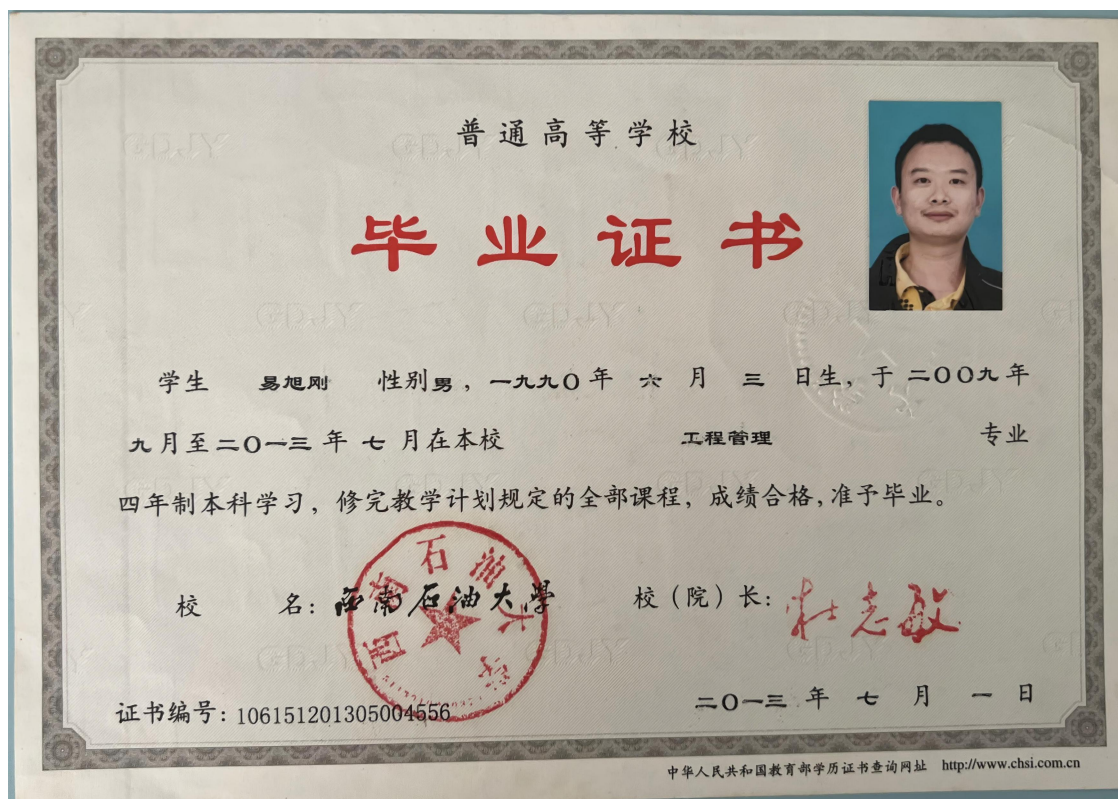 普通高等学校
毕业证书
学生 易旭刚 性别男，一九九〇年 六 月 三 日生，于二〇〇九年
九月至二〇一三年 七 月在本校 工程管理 专业
四年制本科学习，修完教学计划规定的全部课程，成绩合格，准予毕业。
校 名：西南石油大學 校（院）长：杜志敏
西南石油大学
证书编号：106151201305004556 二〇一三年 七 月 一 日
中华人民共和国教育部学历证书查询网址 http://www.chsi.com.cn